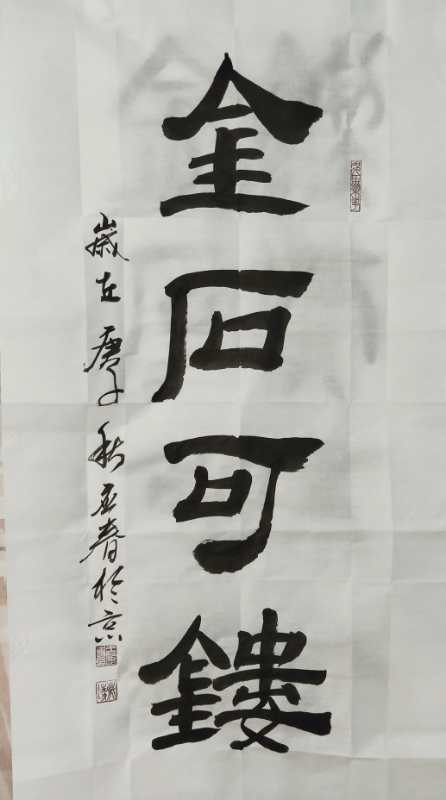 金石可鏤
歲在庚子秋孟春於京